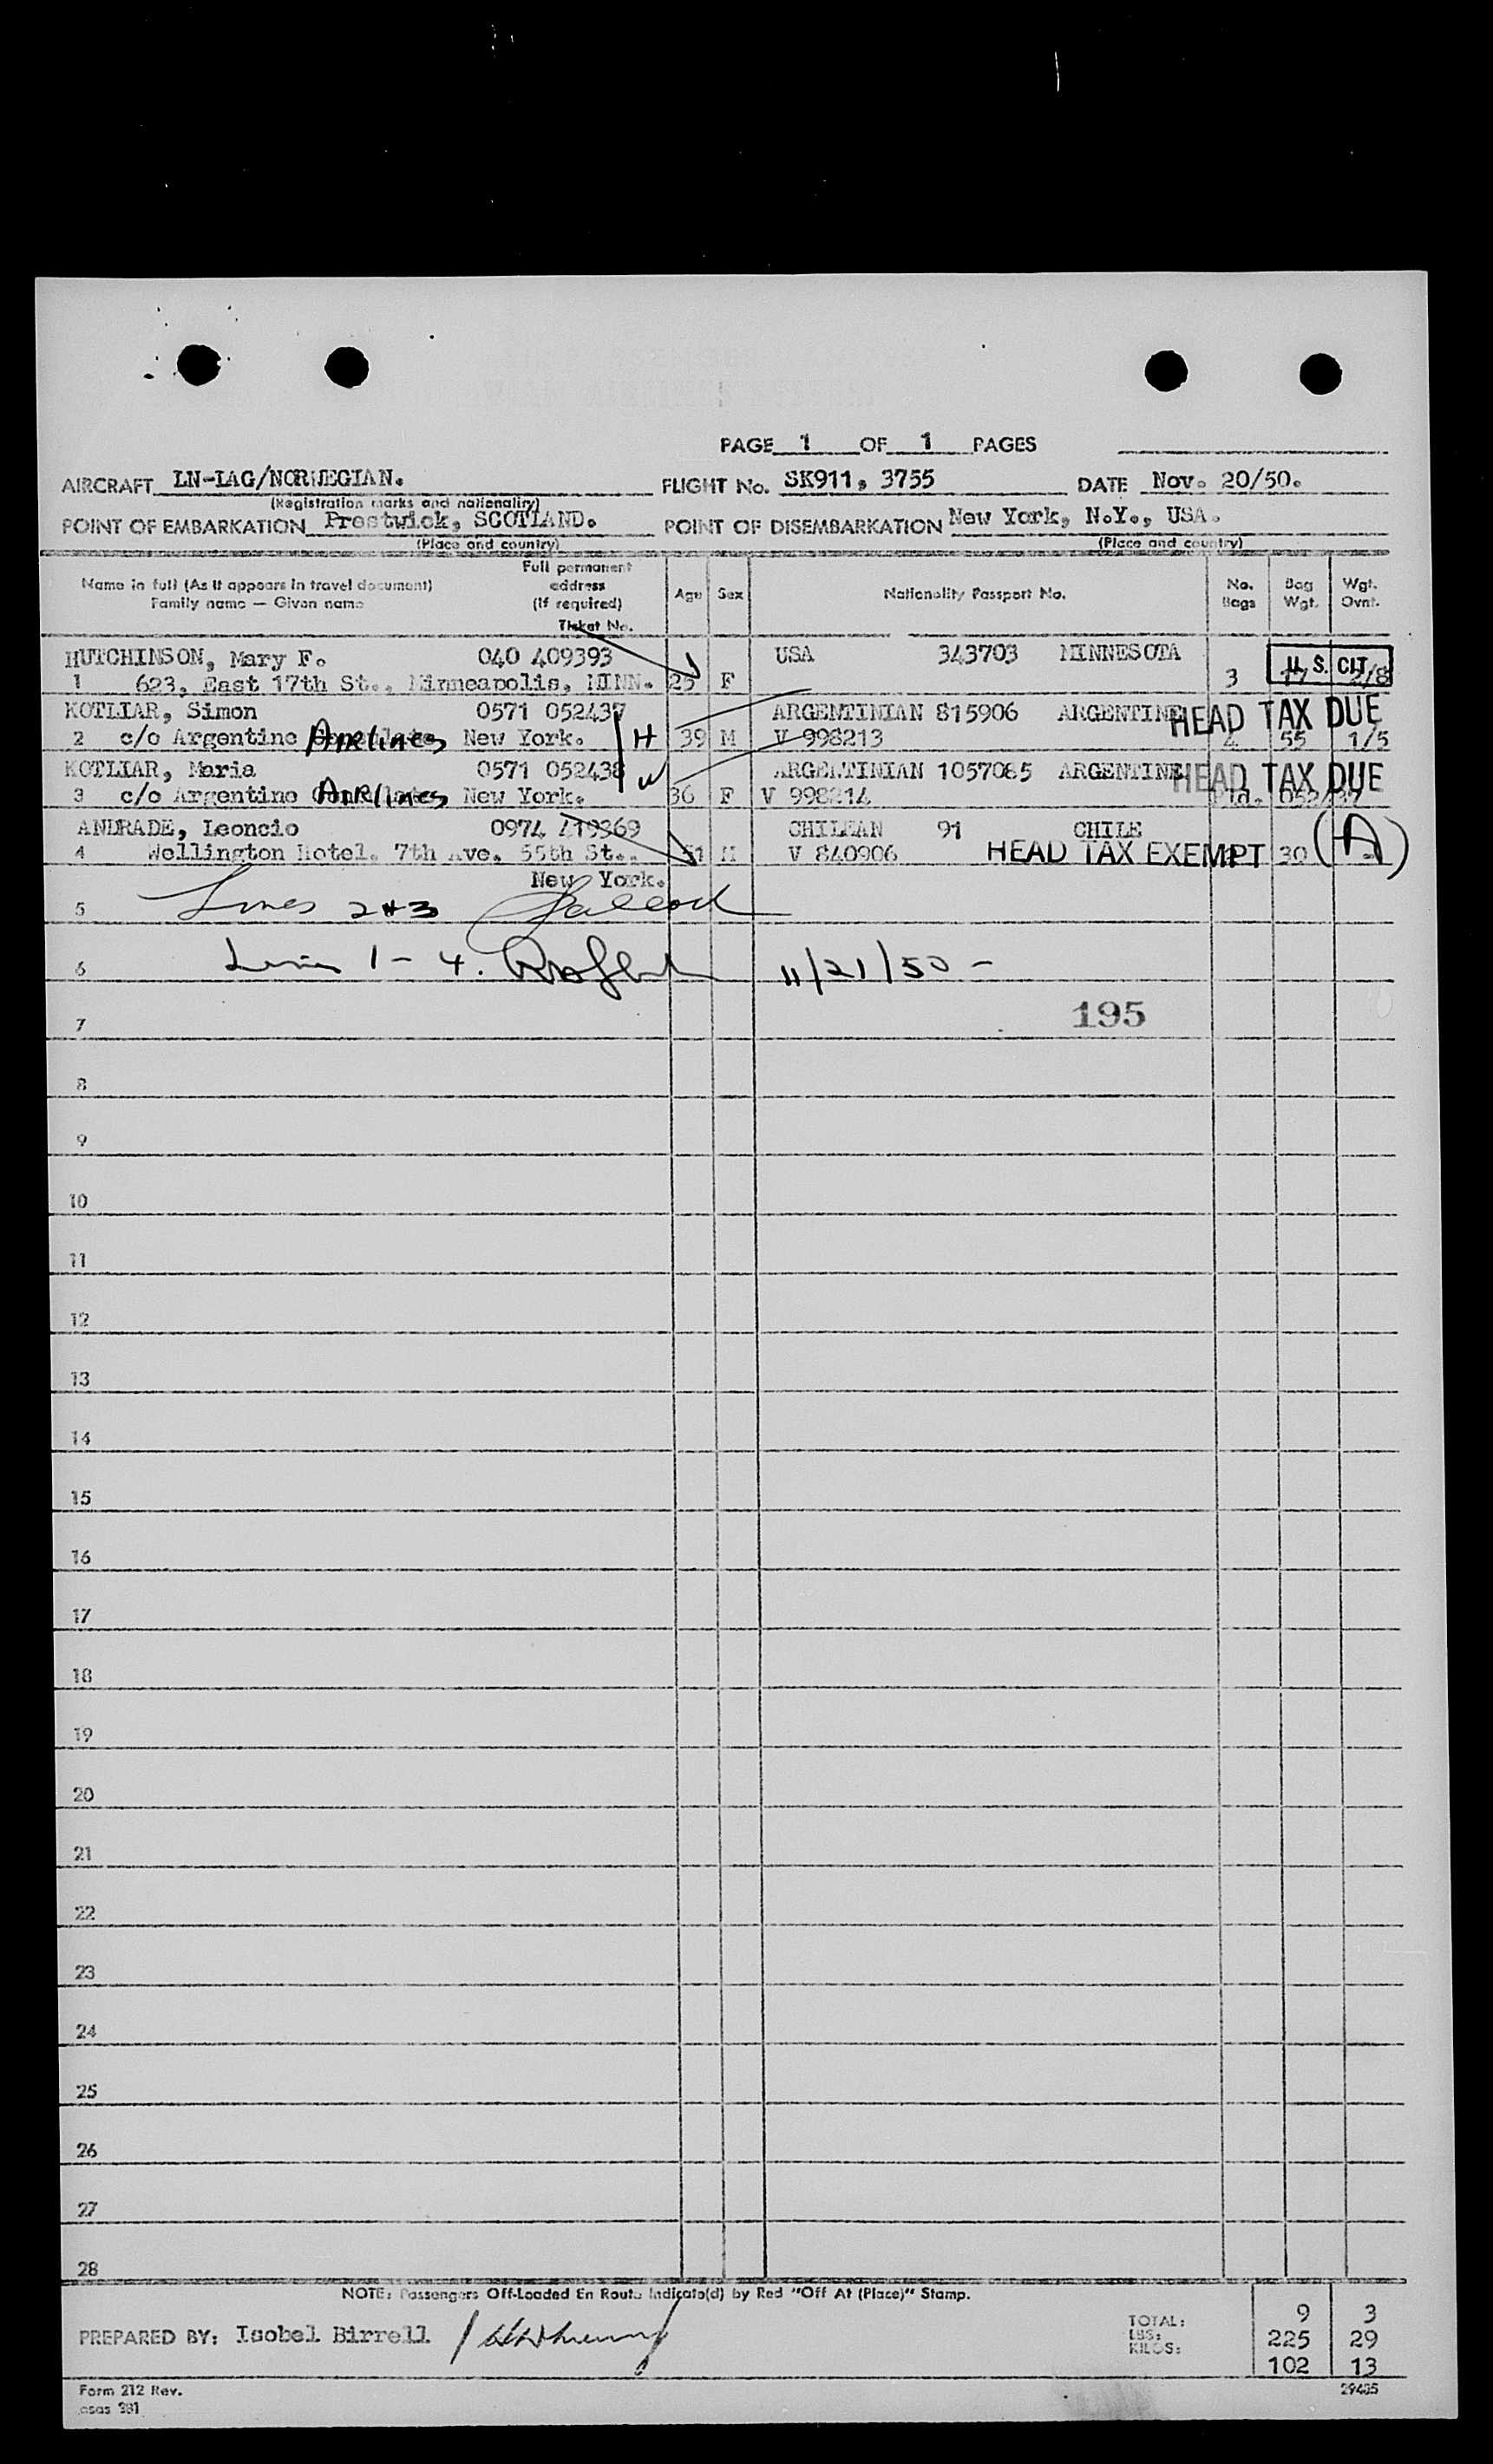 PAGE 1 OF 1 PAGES
AIRCRAFT LN-LAG/NORWEGIAN. FLIGHT No. SK911, 3755 DATE Nov. 20/50.
(Registration marks and nationality)
POINT OF EMBARKATION Prestwick, SCOTLAND. POINT OF DISEMBARKATION New York, N.Y., USA.
(Place and country) (Place and country)
Name in full (As it appears in travel document) Family name — Given name
Full permanent address (If required) Ticket No.
Age Sex Nationality Passport No. No. Bags Bag Wgt. Wgt. Ovnt.
HUTCHINSON, Mary F. 040 409393 USA 343703 MINNESOTA U. S. CIT.
1 623, East 17th St., Minneapolis, MINN. 25 F 3 77 2/8
KOTLIAR, Simon 0571 052437 ARGENTINIAN 815906 ARGENTINE HEAD TAX DUE
2 c/o Argentine Airlines New York. H 39 M V 998213 4 55 1/5
KOTLIAR, Maria 0571 052438 ARGENTINIAN 1057085 ARGENTINE HEAD TAX DUE
3 c/o Argentine Airlines New York. W 36 F V 998214 052437
ANDRADE, Leoncio 0974 419369 CHILEAN 91 CHILE (A)
4 Wellington Hotel. 7th Ave. 55th St., M V 840906 HEAD TAX EXEMPT 30
New York.
5 Lines 2 + 3
6 Lines 1 - 4. 11/21/50 -
7 195
8
9
10
11
12
13
14
15
16
17
18
19
20
21
22
23
24
25
26
27
28
NOTE: Passengers Off-Loaded En Route Indicate(d) by Red "Off At (Place)" Stamp.
PREPARED BY: Isobel Birrell /
TOTAL: 9 3
LBS: 225 29
KILOS: 102 13
Form 212 Rev. 29485
asas 381